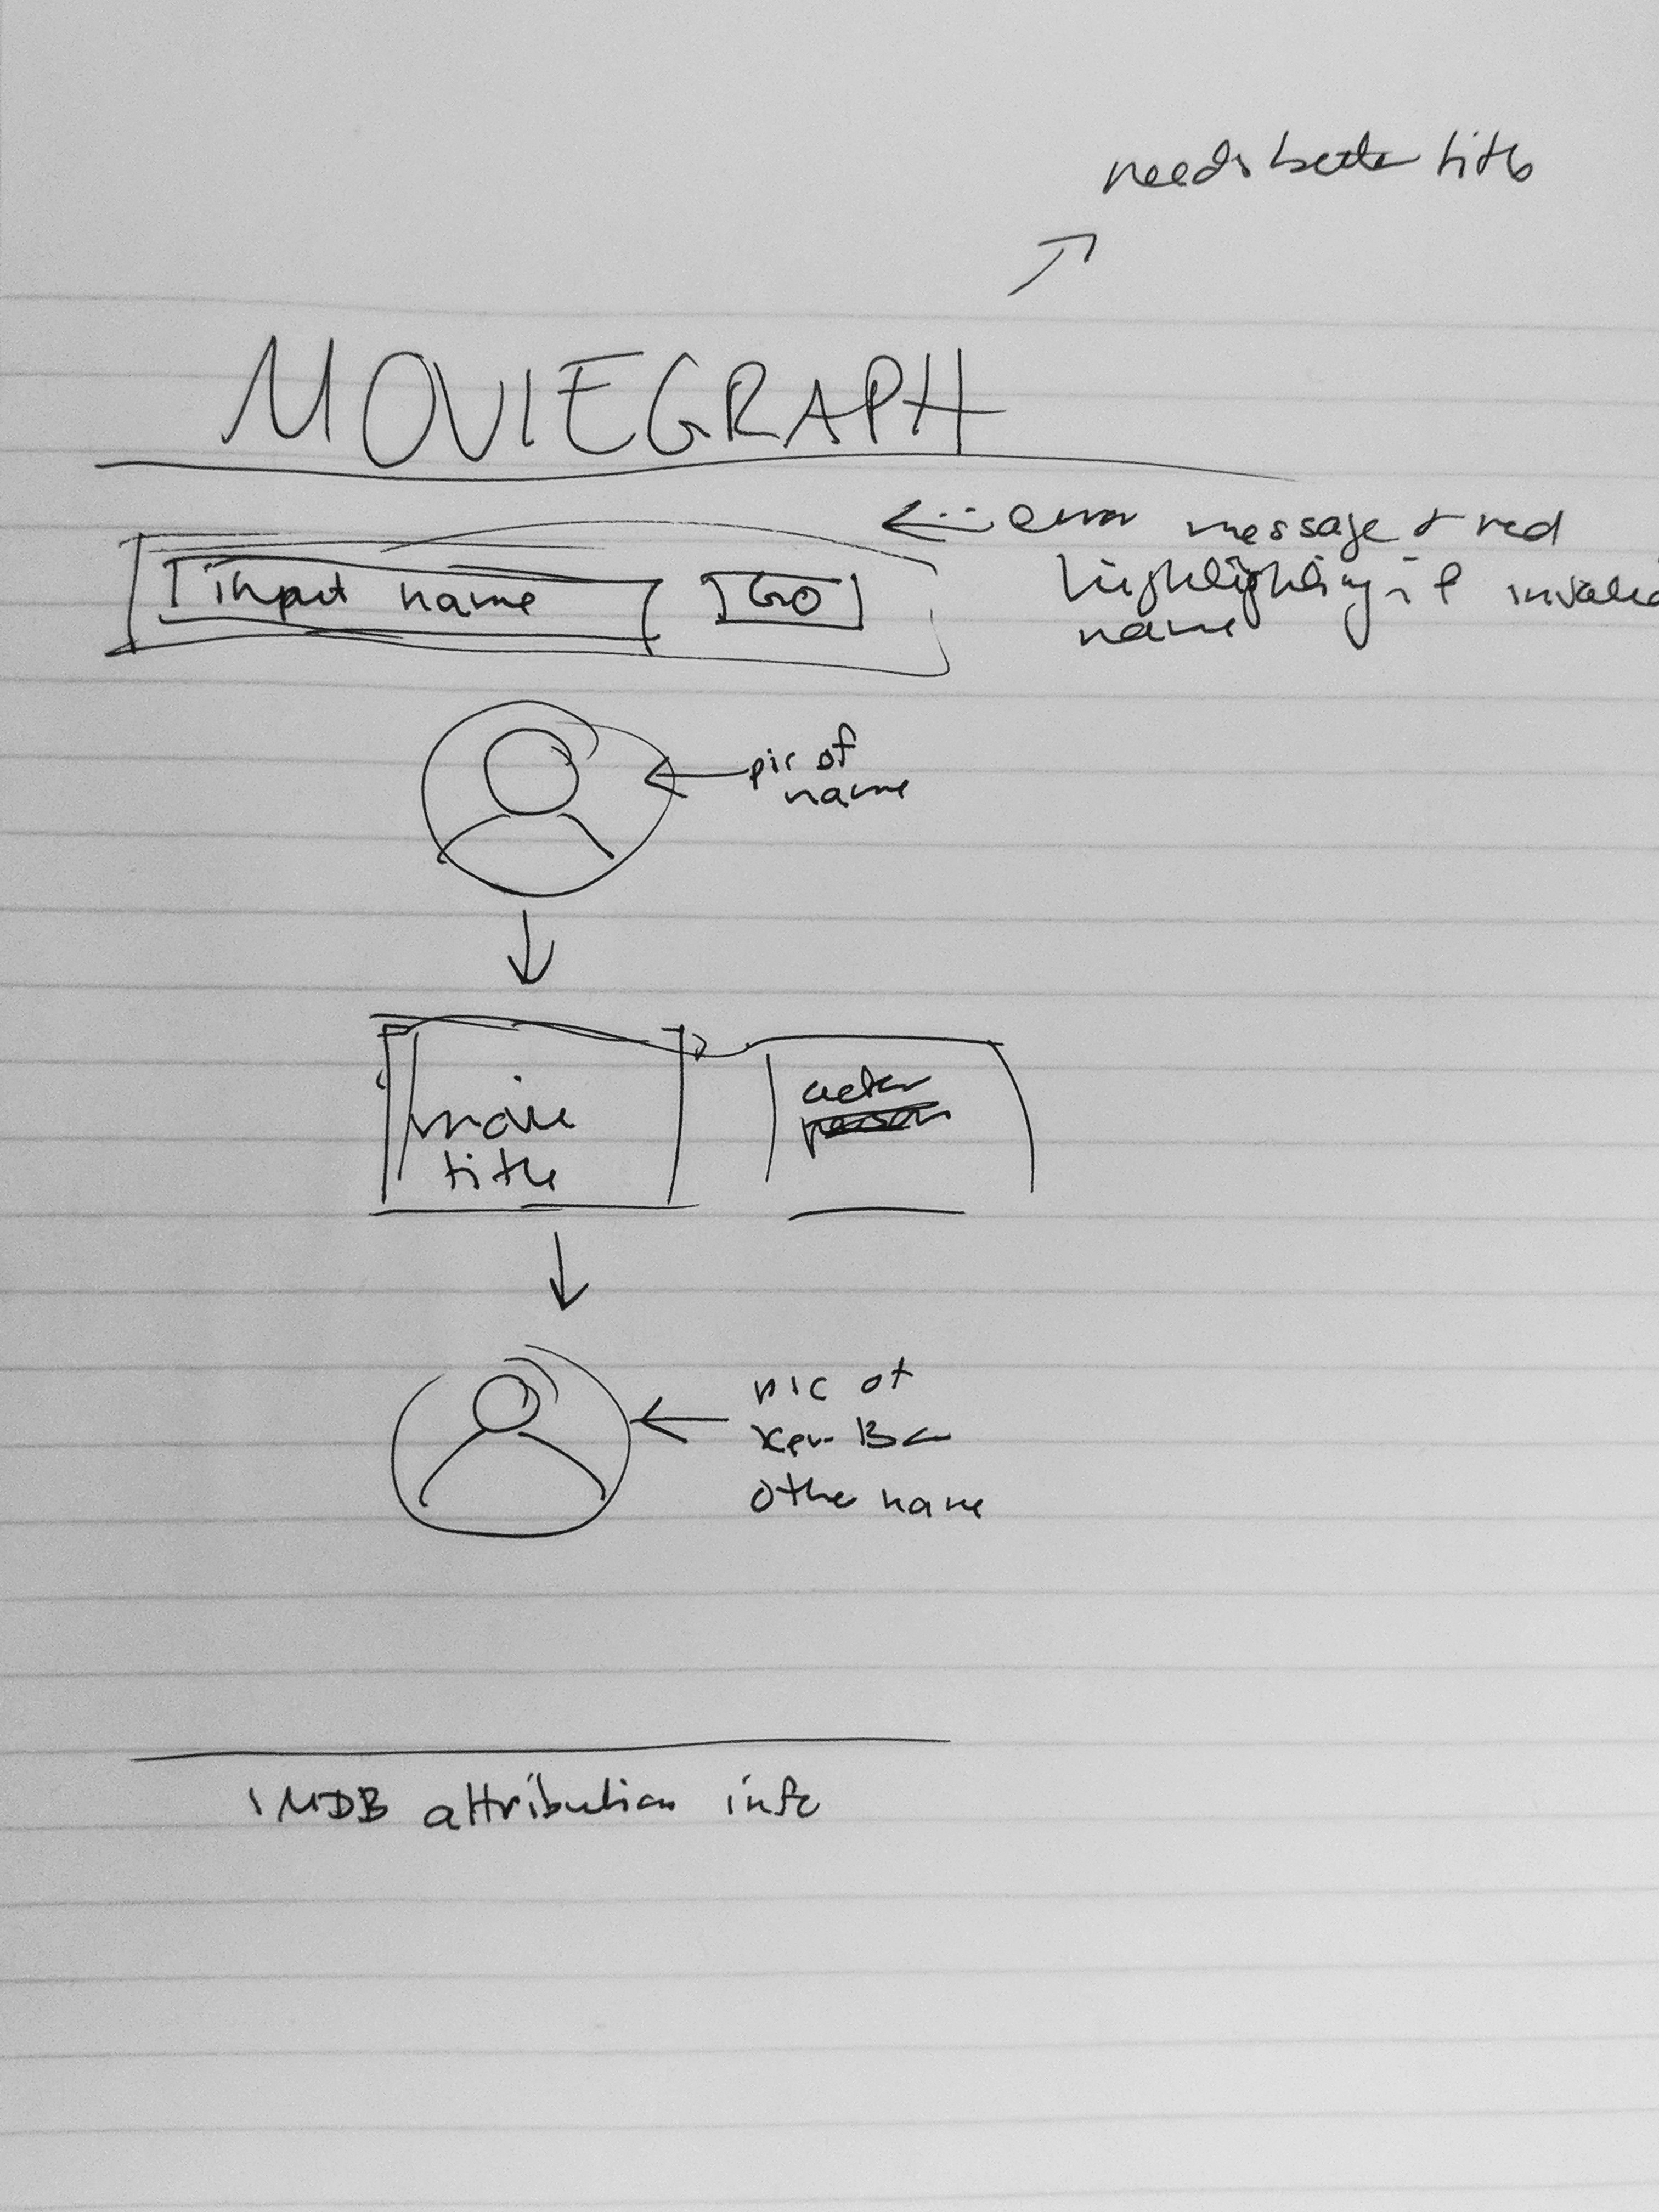 needs better title
MOVIEGRAPH
error message & red
highlighting if invalid
name
input name GO
pic of
name
movie
title
actor
pic of
other name
IMDB attribution info